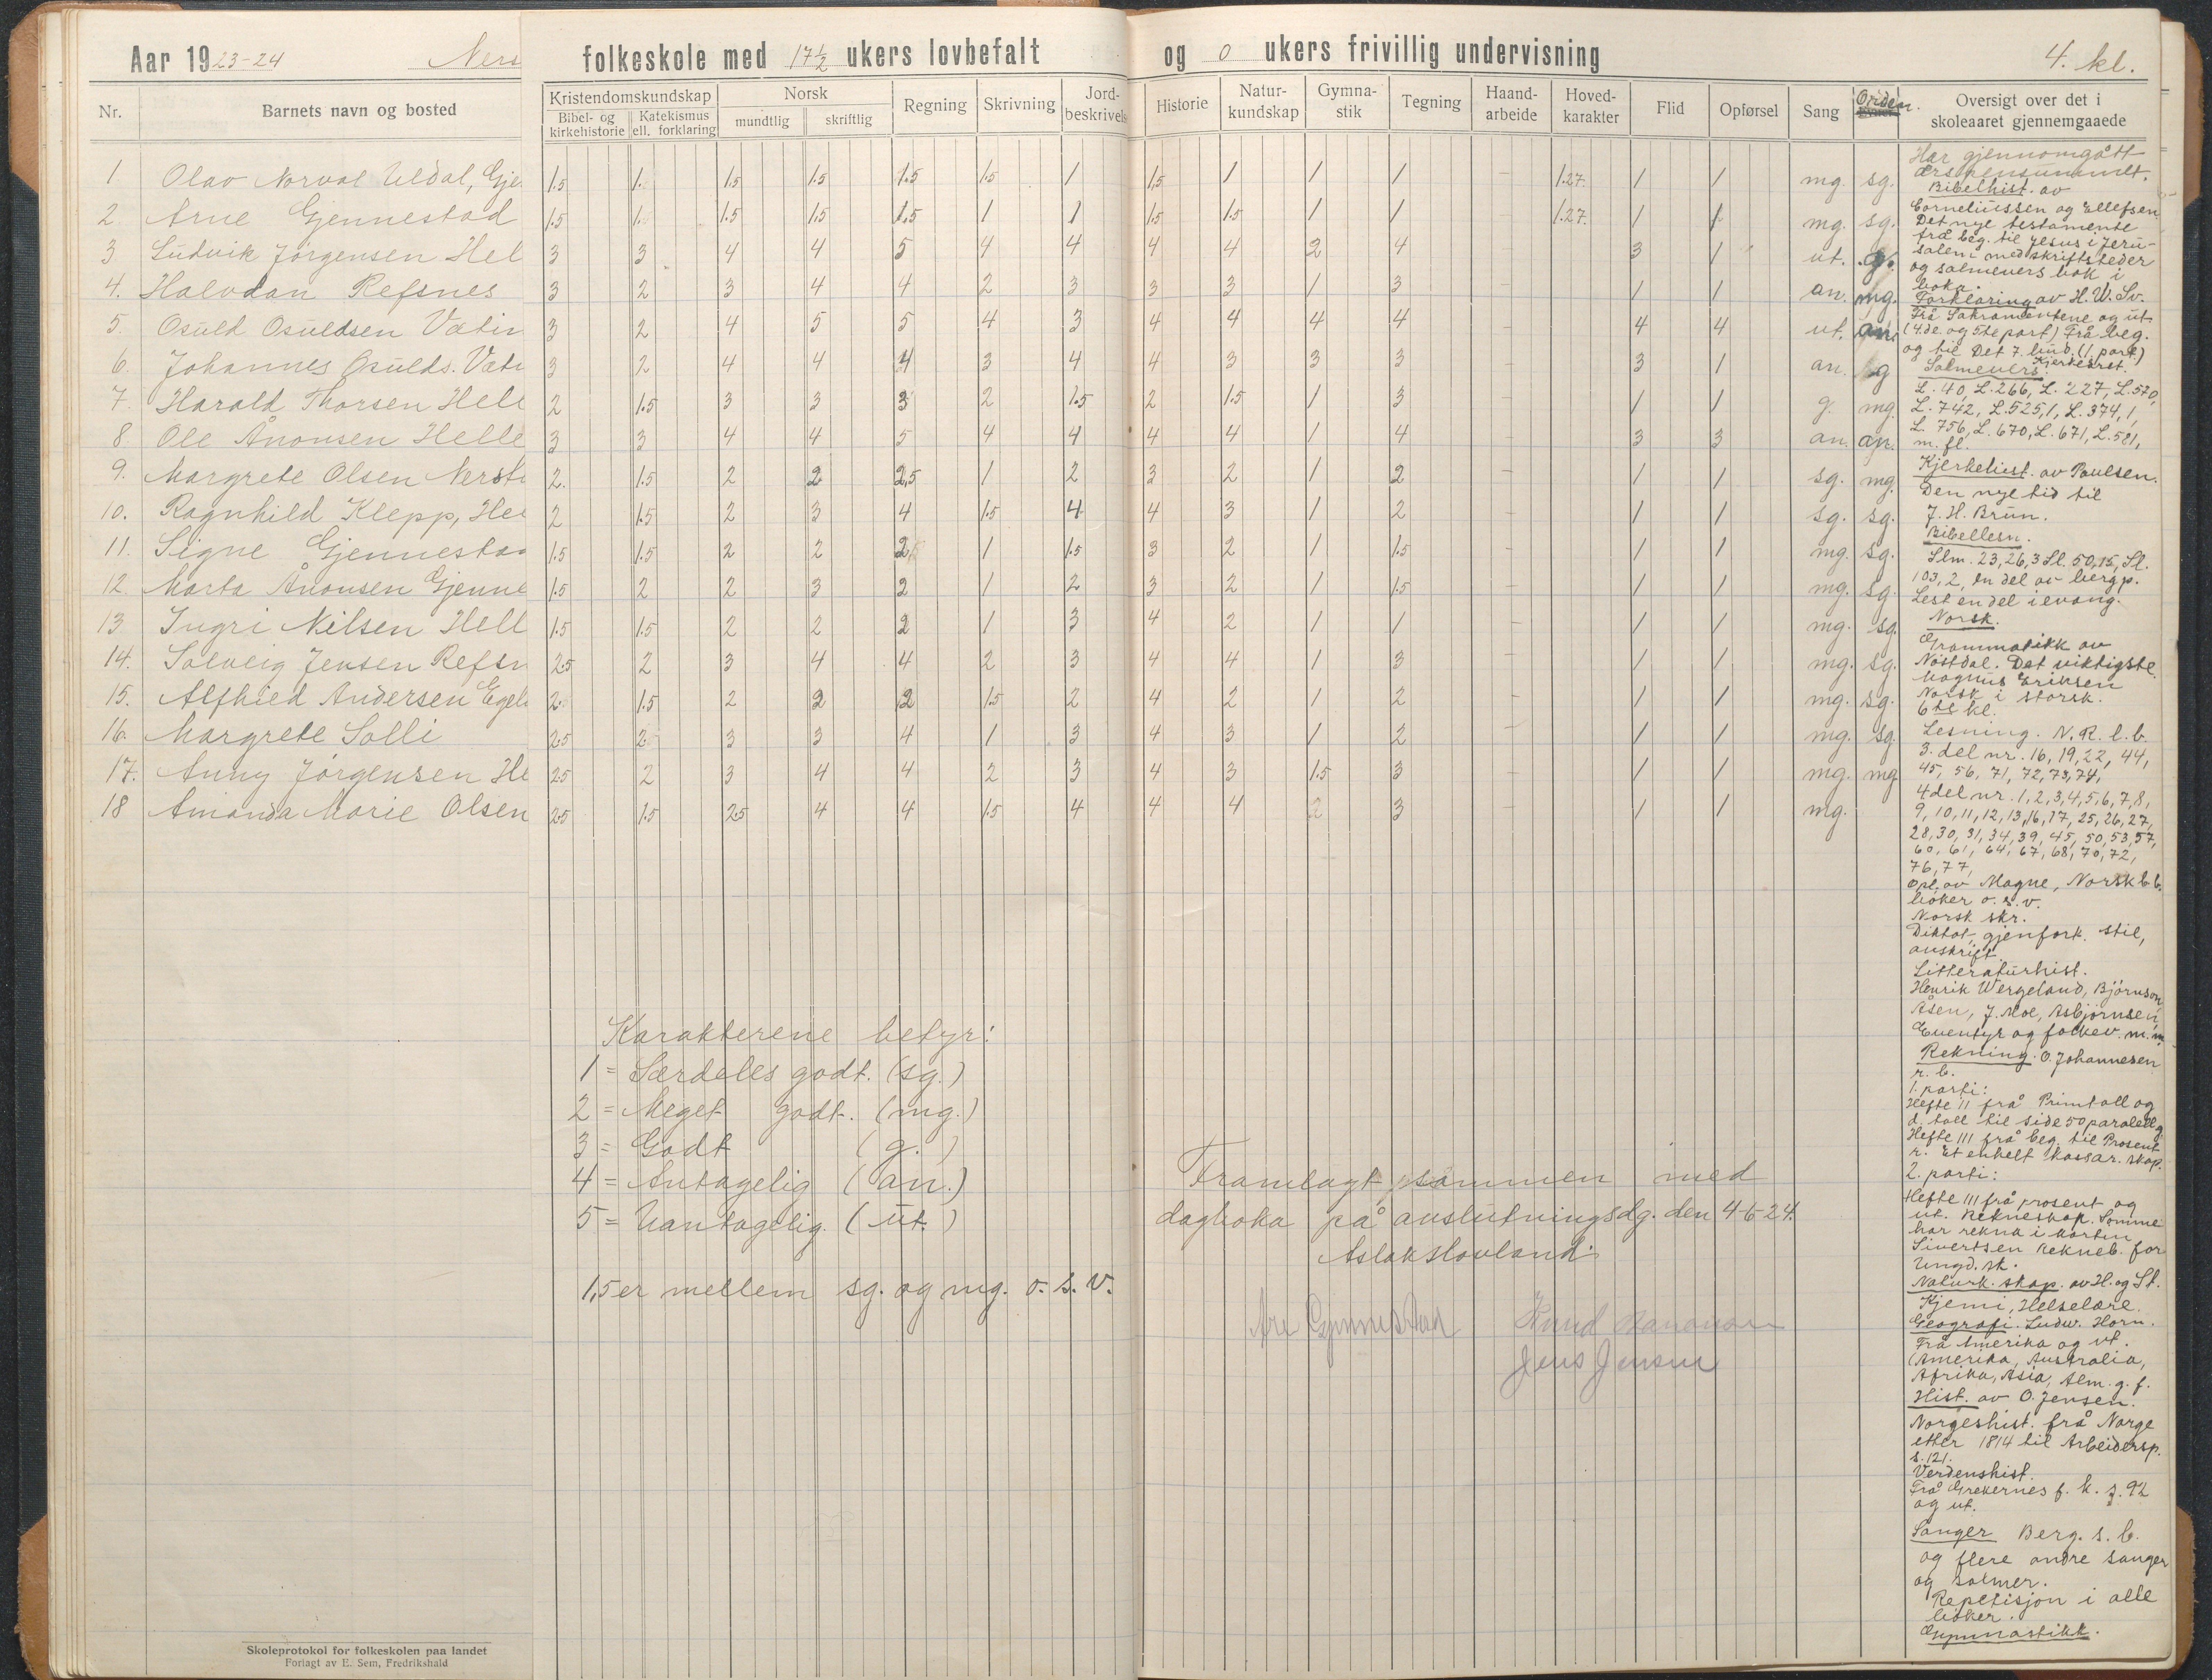 Aar 1923-24 Ners folkeskole med 17½ ukers lovbefalt og 0 ukers frivillig undervisning 4. kl.
Nr. Barnets navn og bosted Kristendomskundskap Norsk Regning Skrivning Jord-beskrivels Historie Natur-kundskap Gymna-stik Tegning Haand-arbeide Hoved-karakter Flid Opførsel Sang Orden. Oversigt over det i skoleaaret gjennemgaaede
Bibel- og kirkehistorie Katekismus ell. forklaring mundtlig skriftlig
1 Olav Norval Uldal, Gje 1.5 1. 1.5 1.5 1.5 1.5 1 1,5 1 1 1 – 1.27. 1 1 mg. sg.
2. Arne Gjennestad 1.5 1. 1.5 1.5 1.5 1 1 1.5 1.5 1 1 – 1.27. 1 1 mg. sg.
3 Ludvik Jørgensen Hel 3 3 4 4 5 4 4 4 4 2 4 – 3 1 ut. g.
4. Halvdan Refsnes 3 2 3 4 4 2 3 3 3 1 3 – 1 1 an. mg.
5. Osuld Osuldsen Vatir 3 2 4 5 5 4 3 4 4 4 4 – 4 4 ut. an.
6. Johannes Osulds. Vatn 3 2 4 4 4 3 4 4 3 3 3 – 3 1 an. g
7. Harald Thorsen Hell 2 1.5 3 3 3 2 1.5 2 1.5 1 3 – 1 1 g. mg.
8. Ole Ånonsen Helle 3 3 4 4 5 4 4 4 4 1 4 – 3 3 an. an.
9. Margrete Olsen Nerst 2. 1.5 2 2 2,5 1 2 3 2 1 2 – 1 1 sg. mg.
10. Ragnhild Klepp, Hel 2 1.5 2 3 4 1.5 4 4 3 1 2 – 1 1 sg. sg.
11. Signe Gjennestad 1.5 1.5 2 2 2,5 1 1.5 3 2 1 1.5 – 1 1 mg. sg.
12. Marta Ånonsen Gjenne 1.5 2 2 3 2 1 2 3 2 1 1.5 – 1 1 mg. sg.
13 Ingri Nilsen Hell 1.5 1.5 2 2 2 1 3 4 2 1 1 – 1 1 mg. sg.
14. Solveig Jensen Refsn 2.5 2 3 4 4 2 3 4 4 1 3 – 1 1 mg. sg.
15. Alfhied Andersen Egel 2. 1.5 2 2 2 1.5 2 4 2 1 2 – 1 1 mg. sg.
16. Margrete Solli 2.5 2 3 3 4 1 3 4 3 1 2 – 1 1 mg. sg.
17. Anny Jørgensen He 2.5 2 3 4 4 2 3 4 3 1.5 3 – 1 1 mg. mg
18 Amanda Marie Olsen 2.5 1.5 2.5 4 4 1.5 4 4 4 2 3 – 1 1 mg.
Har gjennomgått
årspensummet.
Bibelhist. av
Corneliussen og Ellefsen
Det nye testamente
frå beg. til Jesus i Jeru-
salem med skriftsteder
og salmevers bak i
boka.
Forklaring av H. U. Sv.
Frå Sakramentene og ut.
(4.de. og 5te part) Frå beg.
og til Det 7. bud. (1. part)
Salmevers. Kjerkesret.
L. 40, L. 266, L. 227, L. 570,
L. 742, L. 525,1, L. 374, 1,
L. 756, L. 670, L. 671, L. 581,
m. fl.
Kjerkehist. av Poulsen.
Den nye tid til
J. H. Brun.
Bibellesn.
Slm. 23, 26, 3 Sl. 50,15, Sl.
103, 2, en del av bergp.
Lest en del i evang.
Norsk.
Grammatikk av
Nøstdal. Det viktigste
Magnus Eriksen
Norsk i storsk.
6te kl.
Lesning. N. R. l. b.
3. del nr. 16, 19, 22, 44,
45, 56, 71, 72, 73, 74,
4 del nr. 1, 2, 3, 4, 5, 6, 7, 8,
9, 10, 11, 12, 13, 16, 17, 25, 26, 27,
28, 30, 31, 34, 39, 45, 50, 53, 57,
60, 61, 64, 67, 68, 70, 72,
76, 77,
Opl. av Magne, Norsk b.b.
bøker o. s. v.
Norsk skr.
Diktat, gjenfort. stil,
avskrift.
Litteraturhist.
Henrik Wergeland, Bjørnson,
Åsen, J. Moe, Asbjørnsen,
Eventyr og folkev. m. m.
Rekning. O. Johannesen
r. b.
1. parti:
Hefte II frå Primtall og
d. tall til side 50 paralellg.
Hefte III frå beg. til Prosent
r. Et enhelt kassar. skap.
2. parti:
Hefte III frå prosent og
ut. Rekneskap. Somme
har rekna i
Sivertsen Rekneb. for
Ungd. sk.
Naturk. skap. av H. og St.
Kjemi, Helselære.
Geografi. Ludw. Horn.
Frå Amerika og ut.
(Amerika, Australia,
Afrika, Asia, Alm. g. f.
Hist. av O. Jensen.
Norgeshist. frå Norge
etter 1814 til Arbeidersp.
s. 121.
Verdenshist.
Frå Grekernes f. k. s. 92
og ut.
Sanger Berg. s. b.
og flere andre sanger
og salmer.
Repetisjon i alle
bøker.
Gymnastikk.
Karakterene betyr:
1 = Særdeles godt. (sg.)
2 = Meget godt. (mg.)
3 = Godt (g.)
4 = Antagelig (an.)
5 = Uantagelig. (ut.)
1,5 er mellem sg. og mg. o. s. v.
Framlagt sammen med
dagboka på avslutningsdg. den 4-6-24.
Aslak Hovland.
Are Gjennestad Knud Aanonsen
Jens Jensen
Skoleprotokol for folkeskolen paa landet
Forlagt av E. Sem, Fredrikshald